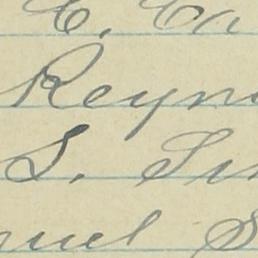 C. Ca
Reyn
S. Sin
uel S